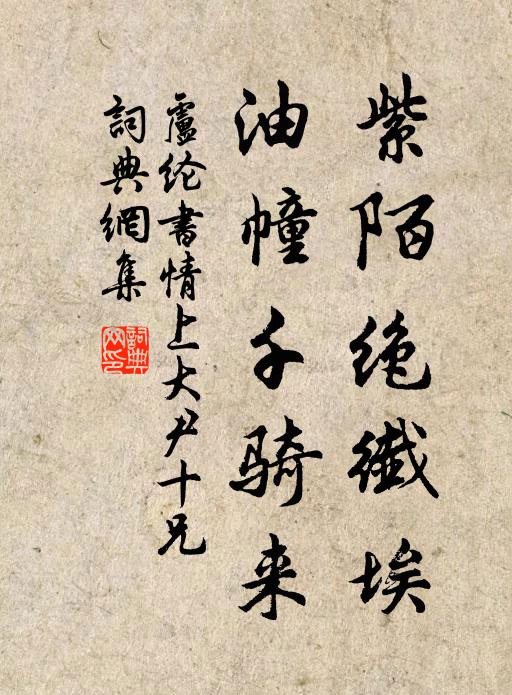 紫陌绝纤埃
油幢千骑来
盧纶書情上大尹十兄
詞典網集
詞典网印